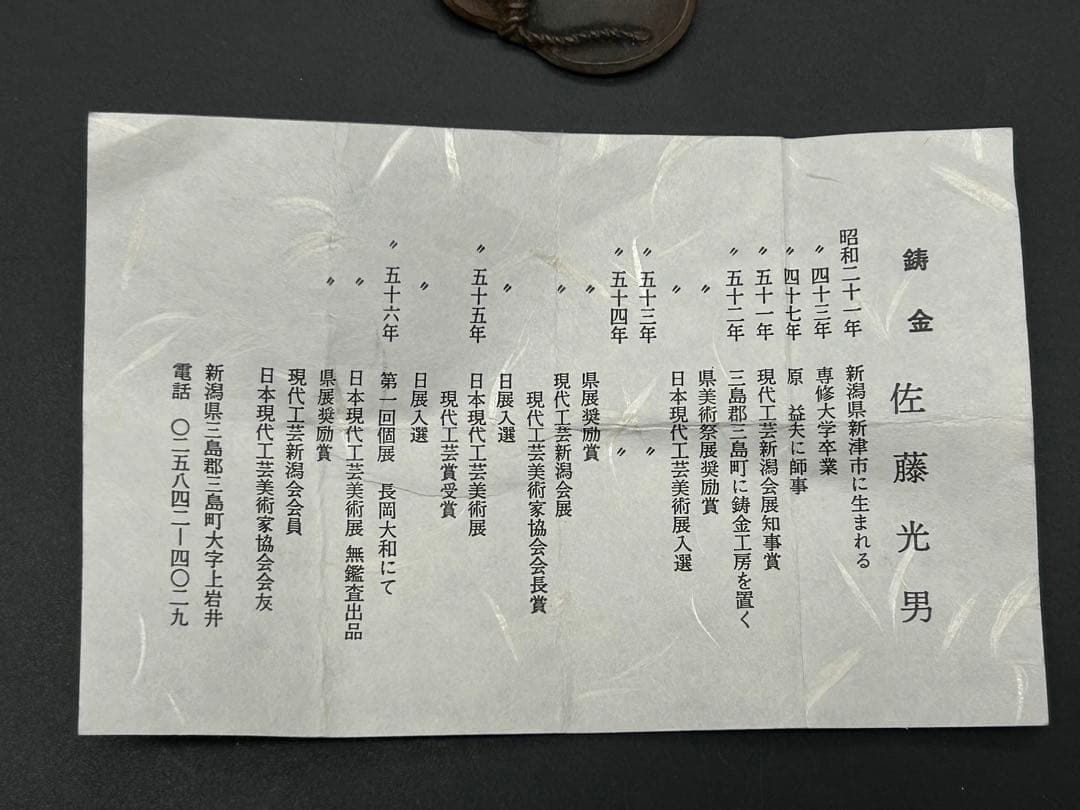 鋳金 佐藤光男
昭和二十一年 新潟県新津市に生まれる
〃 四十三年 専修大学卒業
〃 四十七年 原 益夫に師事
〃 五十一年 現代工芸新潟会展知事賞
〃 五十二年 三島郡三島町に鋳金工房を置く
〃 県美術祭展奨励賞
〃 日本現代工芸美術展入選
〃 五十三年 〃
〃 五十四年 〃
〃 県展奨励賞
〃 現代工芸新潟会展
現代工芸美術家協会会長賞
〃 日展入選
〃 五十五年 日本現代工芸美術展
現代工芸賞受賞
〃 日展入選
〃 五十六年 第一回個展 長岡大和にて
〃 日本現代工芸美術展 無鑑査出品
〃 県展奨励賞
現代工芸新潟会会員
日本現代工芸美術家協会会友
新潟県三島郡三島町大字上岩井
電話 〇二五八四二ー四〇二九